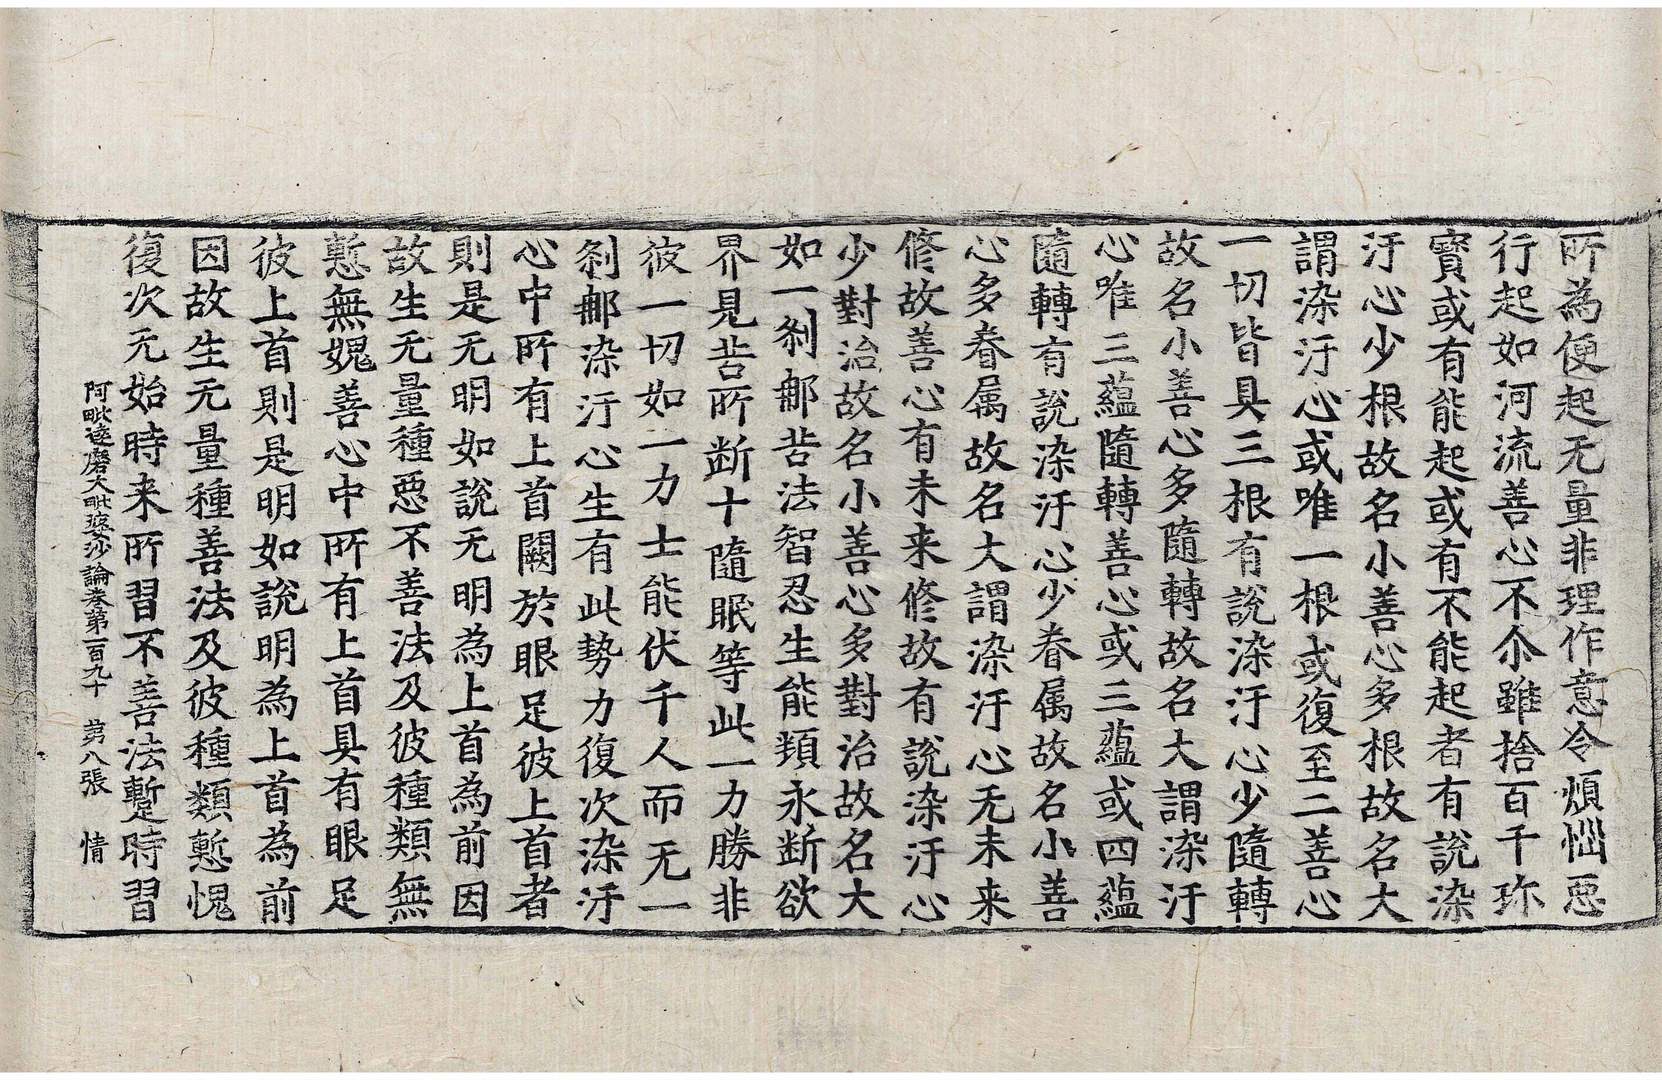 所為便起无量非理作意令煩惱惡
行起如河流善心不尒雖捨百千珎
寶或有能起或有不能起者有說染
汙心少根故名小善心多根故名大
謂染汙心或唯一根或復至二善心
一切皆具三根有說染汙心少隨轉
故名小善心多隨轉故名大謂染汙
心唯三蘊隨轉善心或三蘊或四蘊
隨轉有說染汙心少眷属故名小善
心多眷属故名大謂染汙心无未来
修故善心有未来修故有說染汙心
少對治故名小善心多對治故名大
如一剎那苦法智忍生能頓永断欲
界見苦所断十隨眠等此一力勝非
彼一切如一力士能伏千人而无一
剎那染汙心生有此勢力復次染汙
心中所有上首闕於眼足彼上首者
則是无明如說无明為上首為前因
故生无量種惡不善法及彼種類無
慙無媿善心中所有上首具有眼足
彼上首則是明如說明為上首為前
因故生无量種善法及彼種類慙愧
復次无始時来所習不善法暫時習
阿毗達磨大毗婆沙論卷第一百九十 第八張 情